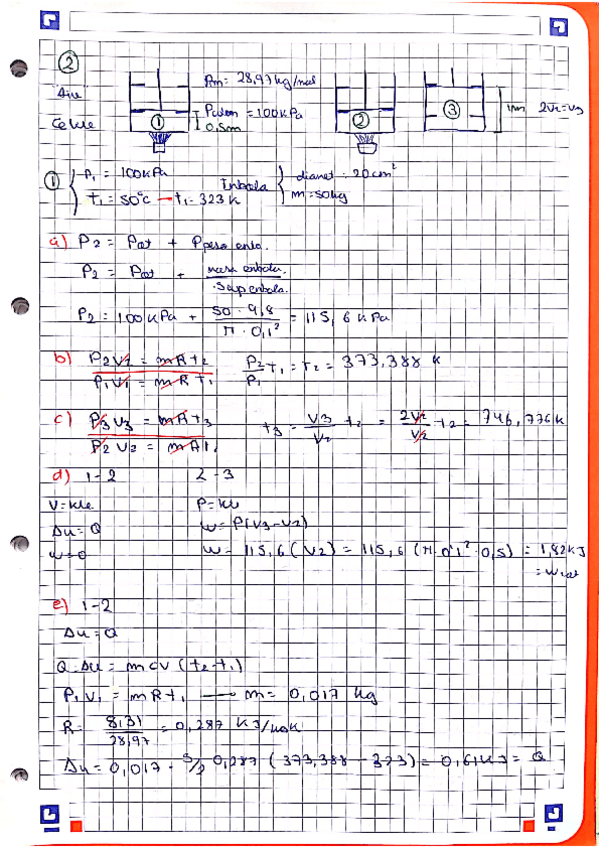 ②
"Aire"
Ce kte
Pm = 28,97 kg/mol
Patm = 100 kPa
0,5m
①
②
③
1m 2V2 = V3
① P1 = 100 kPa
t1 = 50°C → t1 = 323 K
Émbolo
diamet = 20 cm²
m = 50 kg
a) P2 = Pat + Ppeso embo.
P2 = Pat + masa embolo. / Sup embolo.
P2 = 100 kPa + 50 · 9,8 / π · 0,1² = 115,6 kPa
b) P2 V2 = m R t2 / P1 V1 = m R t1 P2/P1 t1 = t2 = 373,388 K
c) P3 V3 = m R t3 / P2 V2 = m R t2 t3 = V3/V2 t2 = 2V2/V2 t2 = 746,776 K
d) 1-2 2-3
V = kte P = kte
Δu = Q w = P(V3 - V2)
w = 0 w = 115,6 (V2) = 115,6 (π · 0'1² · 0,5) = 1,82 kJ
= Wtot
e) 1-2
Δu = Q
Q = Δu = m cv (t2 - t1)
P1 V1 = m R t1 → m = 0,017 kg
R = 8,31 / 28,97 = 0,287 KJ/kgK
Δu = 0,017 · 5/2 0,287 (373,388 - 323) = 0,61 KJ = Q